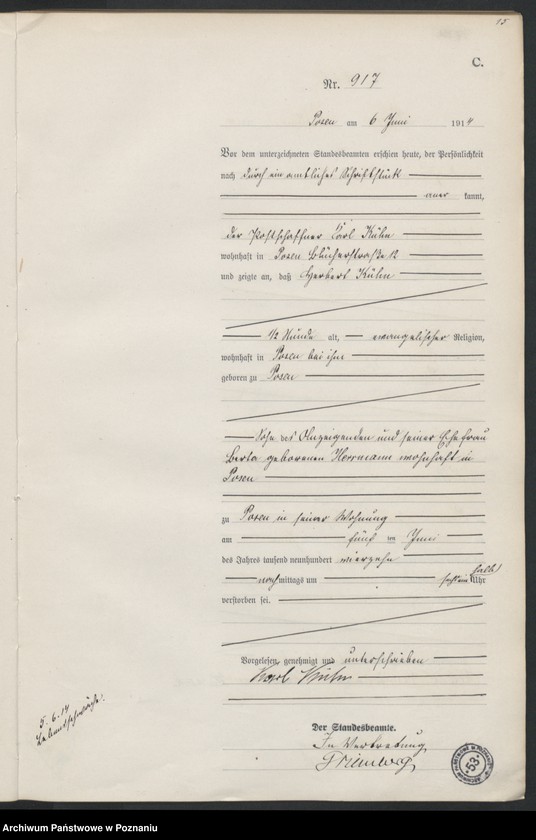 15
C.
Nr. 917
Posen am 6 Juni 1914
Vor dem unterzeichneten Standesbeamten erschien heute, der Persönlichkeit
nach durch ein amtliches Schriftstück
aner kannt,
der Postschaffner Carl Kühn
wohnhaft in Posen Blücherstraße 12
und zeigte an, daß Herbert Kühn
1/2 Stunde alt, evangelischer Religion,
wohnhaft in Posen bei ihm
geboren zu Posen
Sohn des Anzeigenden und seiner Ehefrau
Berta geborenen Herrmann wohnhaft in
Posen
zu Posen in seiner Wohnung
am fünf ten Juni
des Jahres tausend neunhundert vierzehn
nachmittags um halb
Uhr
verstorben sei.
Vorgelesen, genehmigt und unterschrieben
Karl Kühn
Der Standesbeamte.
In Vertretung
5.6.14
Lebensschwäche.
53
Archiwum Państwowe w Poznaniu